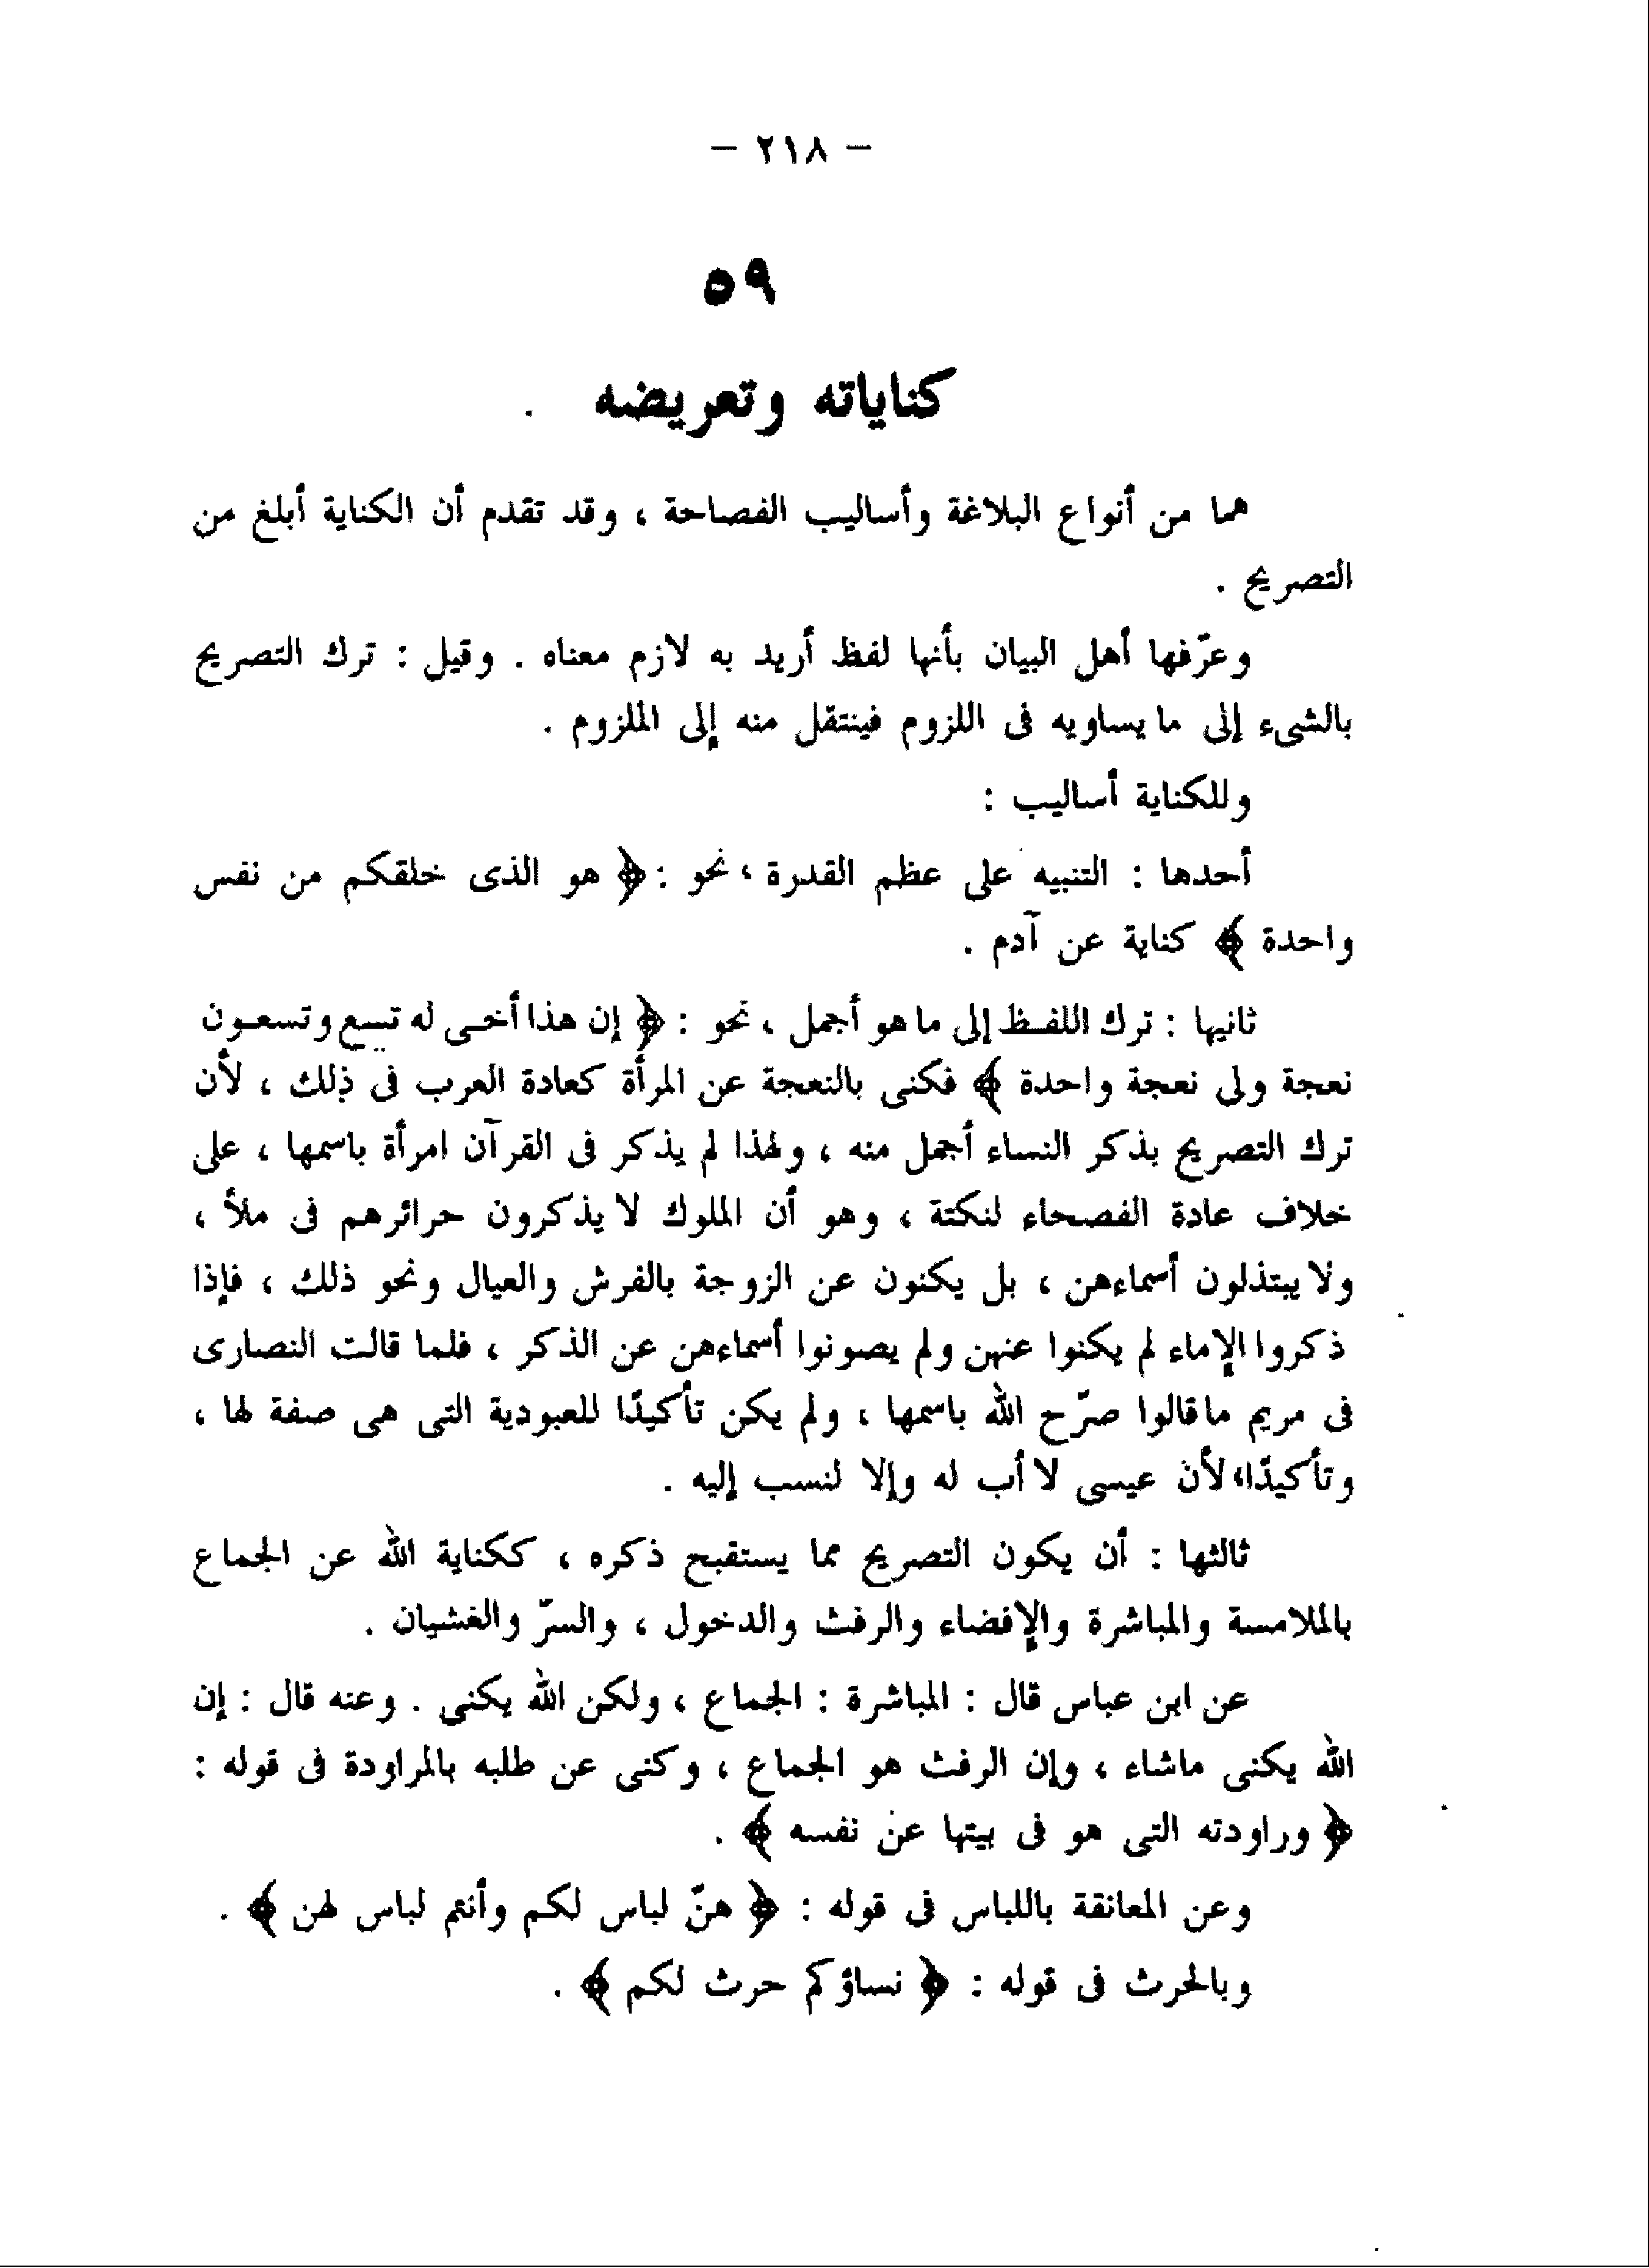 – ٢١٨ –
٥٩
كناياته وتعريضه .
هما من أنواع البلاغة وأساليب الفصاحة ، وقد تقدم أن الكناية أبلغ من
التصريح .
وعرّفها أهل البيان بأنها لفظ أريد به لازم معناه . وقيل : ترك التصريح
بالشىء إلى ما يساويه فى اللزوم فينتقل منه إلى الملزوم .
وللكناية أساليب :
أحدها : التنبيه على عظم القدرة ، نحو : ﴿ هو الذى خلقكم من نفس
واحدة ﴾ كناية عن آدم .
ثانيها : ترك اللفظ إلى ما هو أجمل ، نحو : ﴿ إن هذا أخى له تسع وتسعون
نعجة ولى نعجة واحدة ﴾ فكنى بالنعجة عن المرأة كعادة العرب فى ذلك ، لأن
ترك التصريح بذكر النساء أجمل منه ، ولهذا لم يذكر فى القرآن امرأة باسمها ، على
خلاف عادة الفصحاء لنكتة ، وهو أن الملوك لا يذكرون حرائرهم فى ملأ ،
ولا يبتذلون أسماءهن ، بل يكنون عن الزوجة بالفرش والعيال ونحو ذلك ، فإذا
ذكروا الإماء لم يكنوا عنهن ولم يصونوا أسماءهن عن الذكر ، فلما قالت النصارى
فى مريم ما قالوا صرّح الله باسمها ، ولم يكن تأكيدًا للعبودية التى هى صفة لها ،
وتأكيدًا، لأن عيسى لا أب له وإلا لنسب إليه .
ثالثها : أن يكون التصريح مما يستقبح ذكره ، ككناية الله عن الجماع
بالملامسة والمباشرة والإفضاء والرفث والدخول ، والسرّ والغشيان .
عن ابن عباس قال : المباشرة : الجماع ، ولكن الله يكنى . وعنه قال : إن
الله يكنى ماشاء ، وإن الرفث هو الجماع ، وكنى عن طلبه بالمراودة فى قوله :
﴿ وراودته التى هو فى بيتها عن نفسه ﴾ .
وعن المعانقة باللباس فى قوله : ﴿ هنّ لباس لكم وأنتم لباس لهن ﴾ .
وبالحرث فى قوله : ﴿ نساؤكم حرث لكم ﴾ .